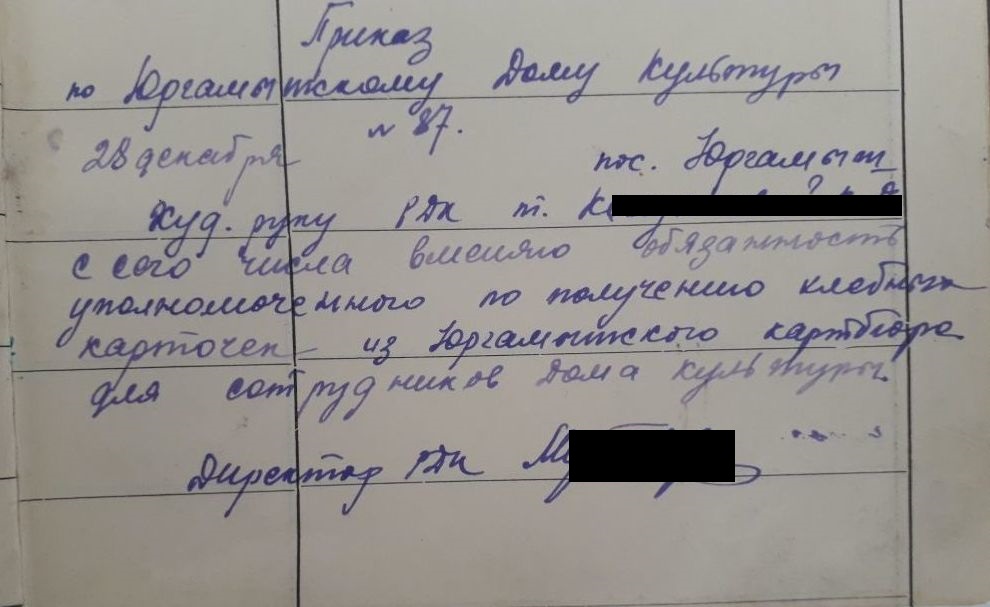 Приказ
по Юргамышскому Дому Культуры
№ 87.
28 декабря пос. Юргамыш
Худ. руку РДК т. К
с сего числа вменяю обязанность
уполномоченного по получению хлебных
карточек из Юргамышского картбюро
для сотрудников Дома культуры.
Директор РДК